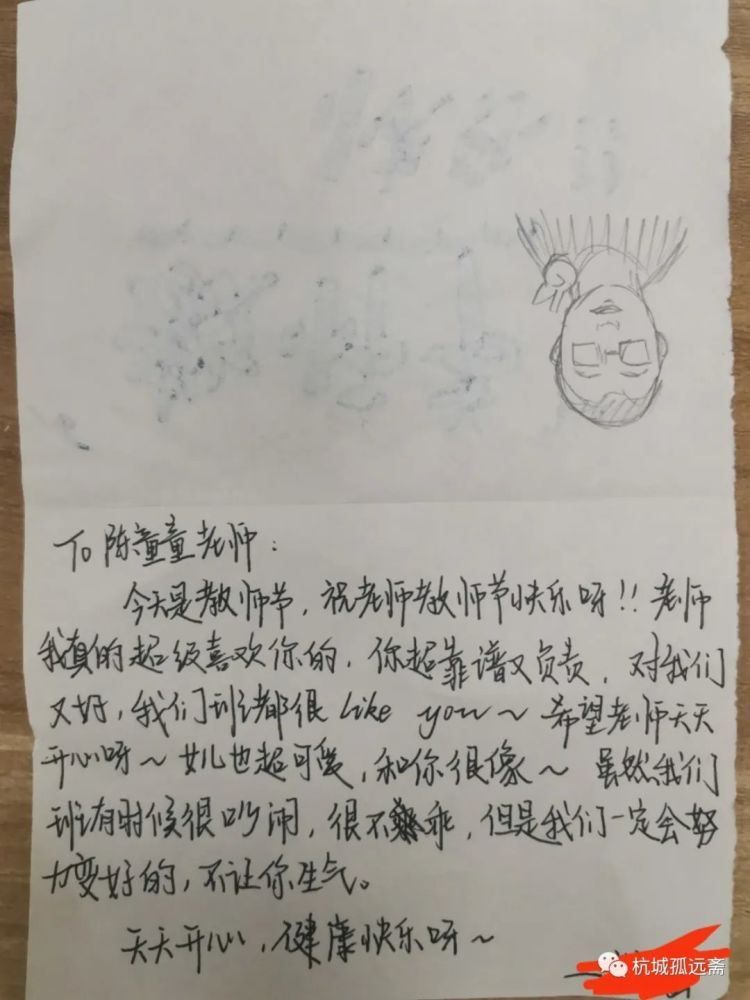 To 陈童童老师：
今天是教师节，祝老师教师节快乐呀!! 老师
我真的超级喜欢你的，你超靠谱又负责，对我们
又好，我们班都很 like you～ 希望老师天天
开心呀～ 女儿也超可爱，和你很像～ 虽然我们
班有时候很吵闹，很不乖，但是我们一定会努
力变好的，不让你生气。
天天开心，健康快乐呀～
杭城孤远斋